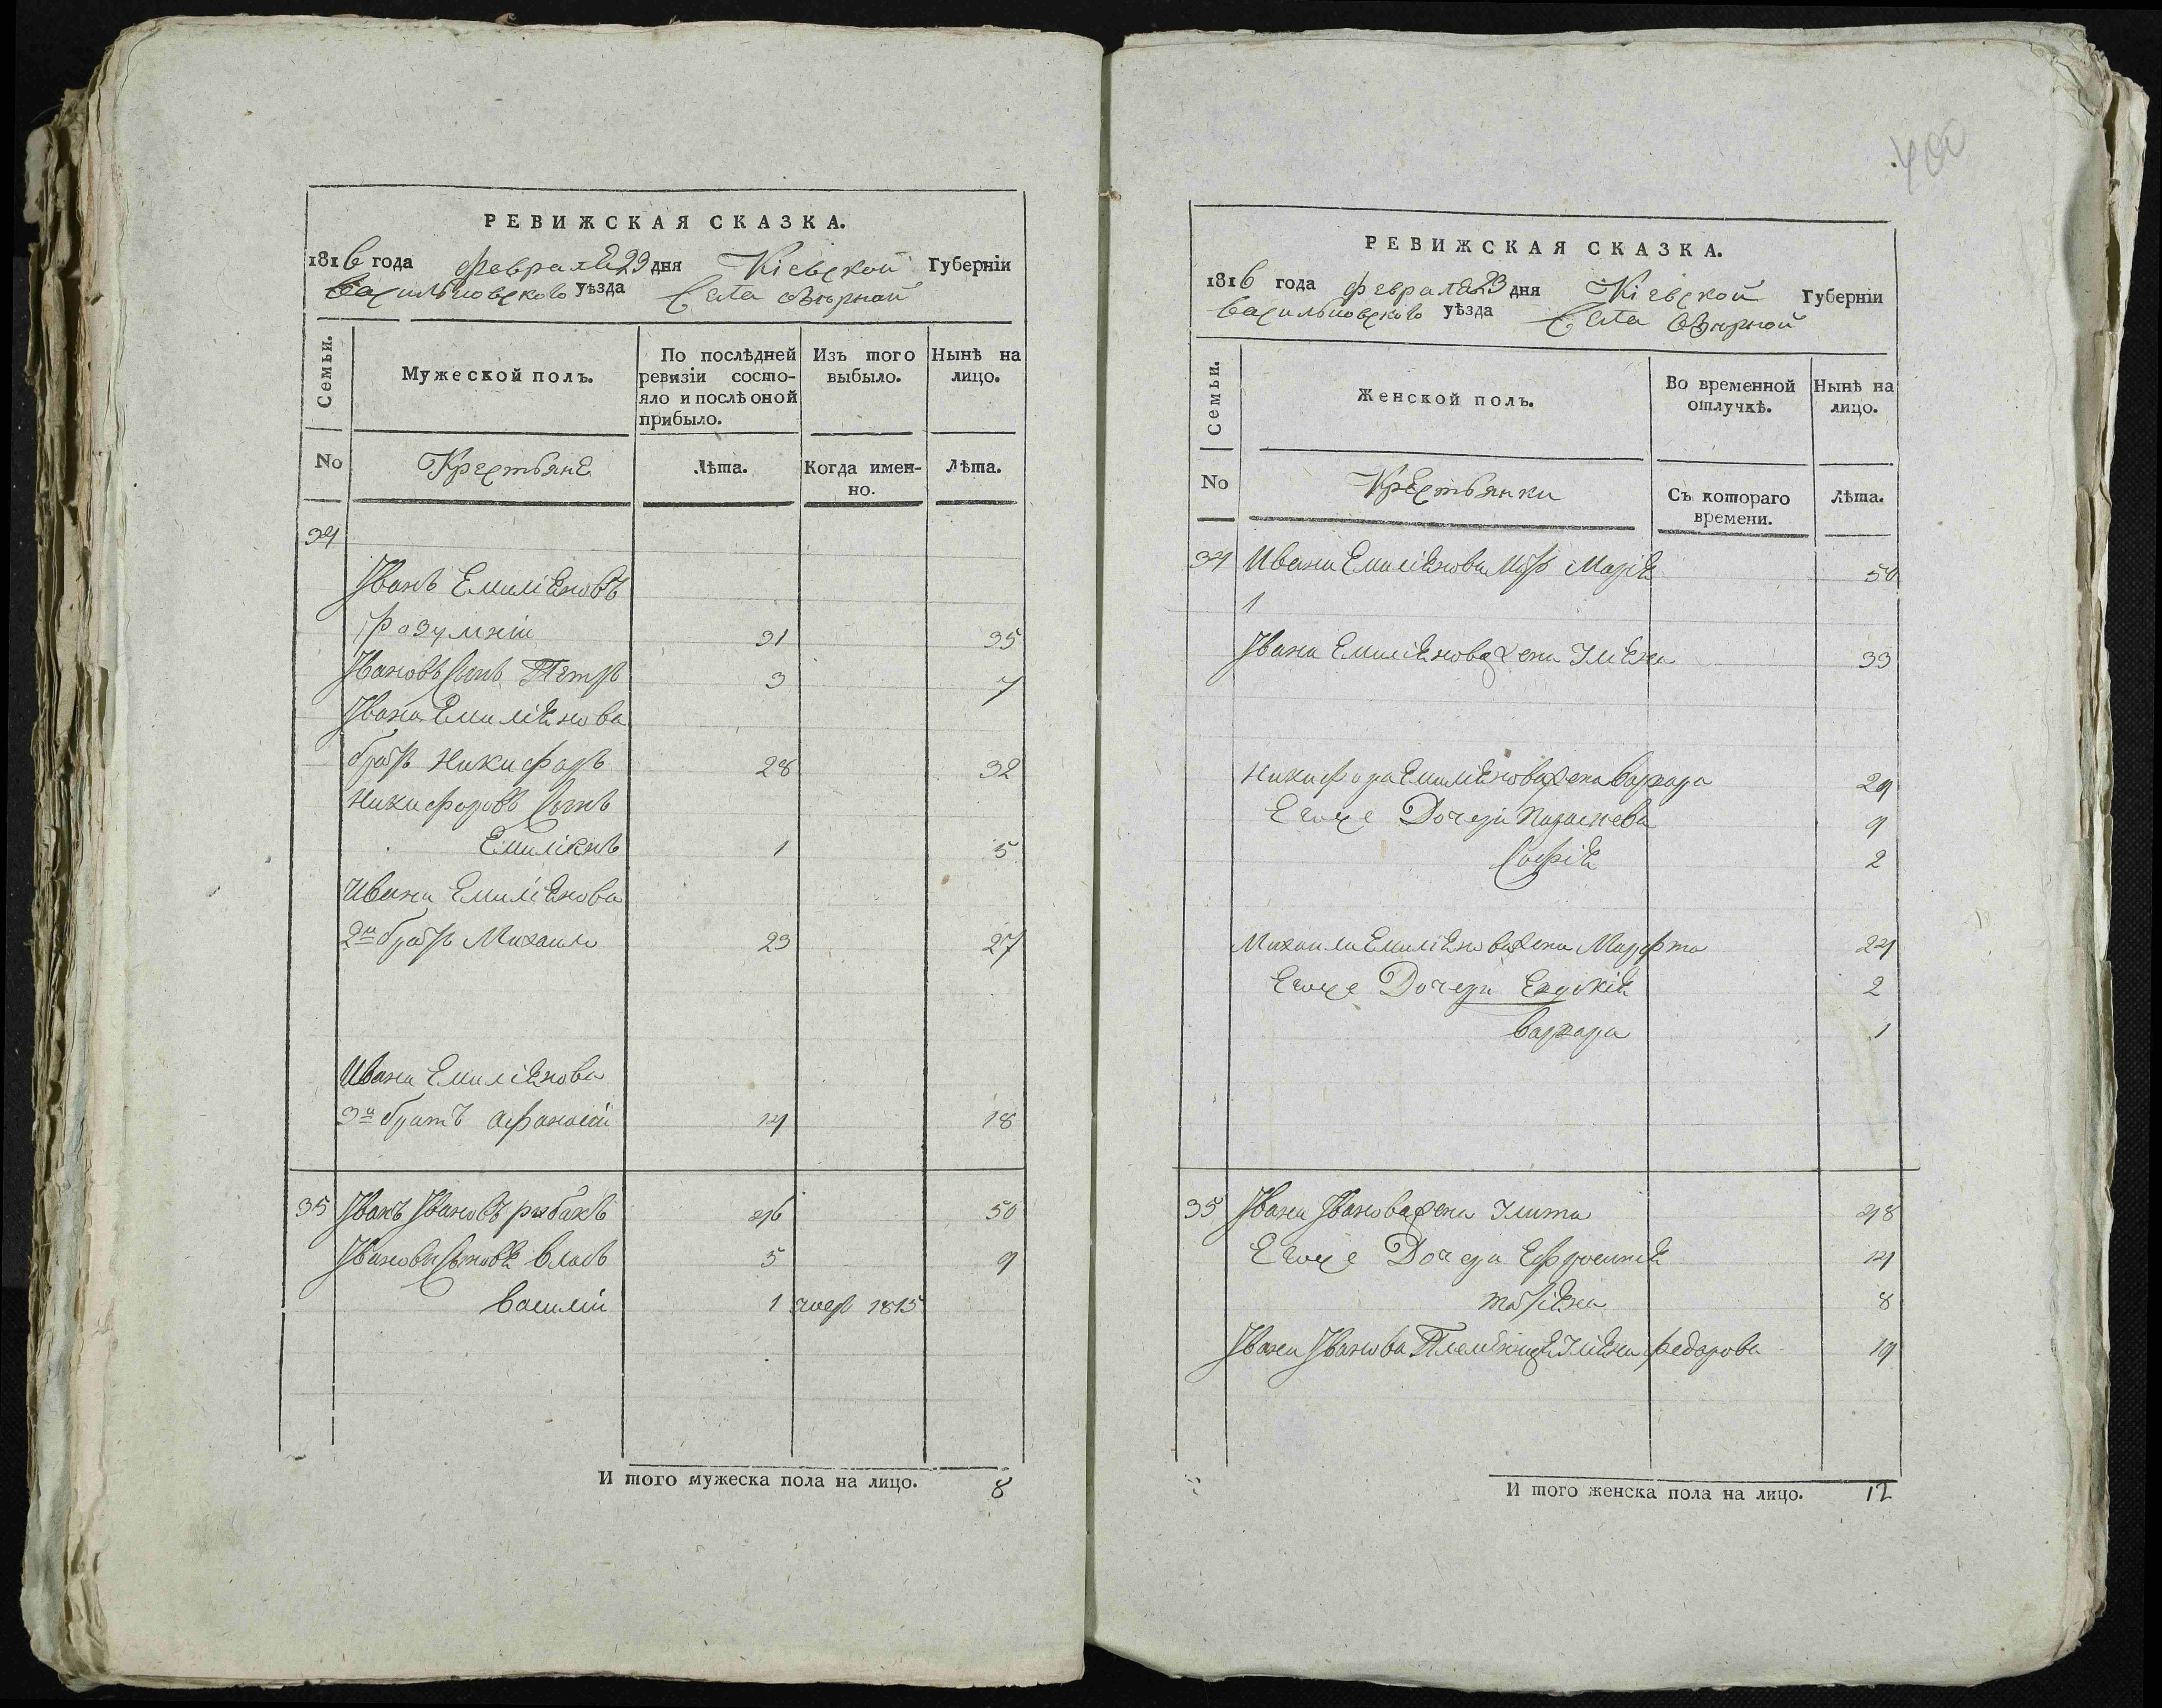 РЕВИЖСКАЯ СКАЗКА.
1816 года февраля 23 дня Кіевской Губерніи
Васильковского уѣзда Села Озюрной
Семьи.
Мужеской полъ.
По послѣдней ревизіи состояло и послѣ оной прибыло.
Изъ того выбыло.
Нынѣ на лицо.
No Крестьяне Лѣта. Когда именно. Лѣта.
34
Іванъ Емиліяновъ
Розумній 31 35
Івановъ Сынъ Петръ 3 7
Івана Емиліянова
братъ Никифоръ 28 32
Никифоровъ Сынъ
Емиліянъ 1 5
Ивана Емиліянова
2й братъ Михаило 23 27
Ивана Емиліянова
3й братъ Афанасій 14 18
35 Іванъ Івановъ рыбакъ 46 50
Івановы Сыновья Власъ 5 9
Василій 1 умер 1815
И того мужеска пола на лицо. 8
400
РЕВИЖСКАЯ СКАЗКА.
1816 года февраля 23 дня Кіевской Губерніи
Васильковского уѣзда Села Озюрной
Семьи.
Женской полъ.
Во временной отлучкѣ.
Нынѣ на лицо.
No Крестьянки Съ котораго времени. Лѣта.
34 Ивана Емиліянова Мать Марія 50
1
Івана Емиліянова жена Уліяна 33
Никифора Емиліянова жена Варвара 29
Егоже Дочери Параскева 9
Софія 2
Михаила Емиліянова жена Марфта 24
Егоже Дочери Евдокія 2
Варвара 1
35 Івана Іванова жена Улита 48
Егоже Дочери Ефросинія 14
Татіяна 8
Івана Іванова Племѣнница Уліяна федорова 19
И того женска пола на лицо. 12